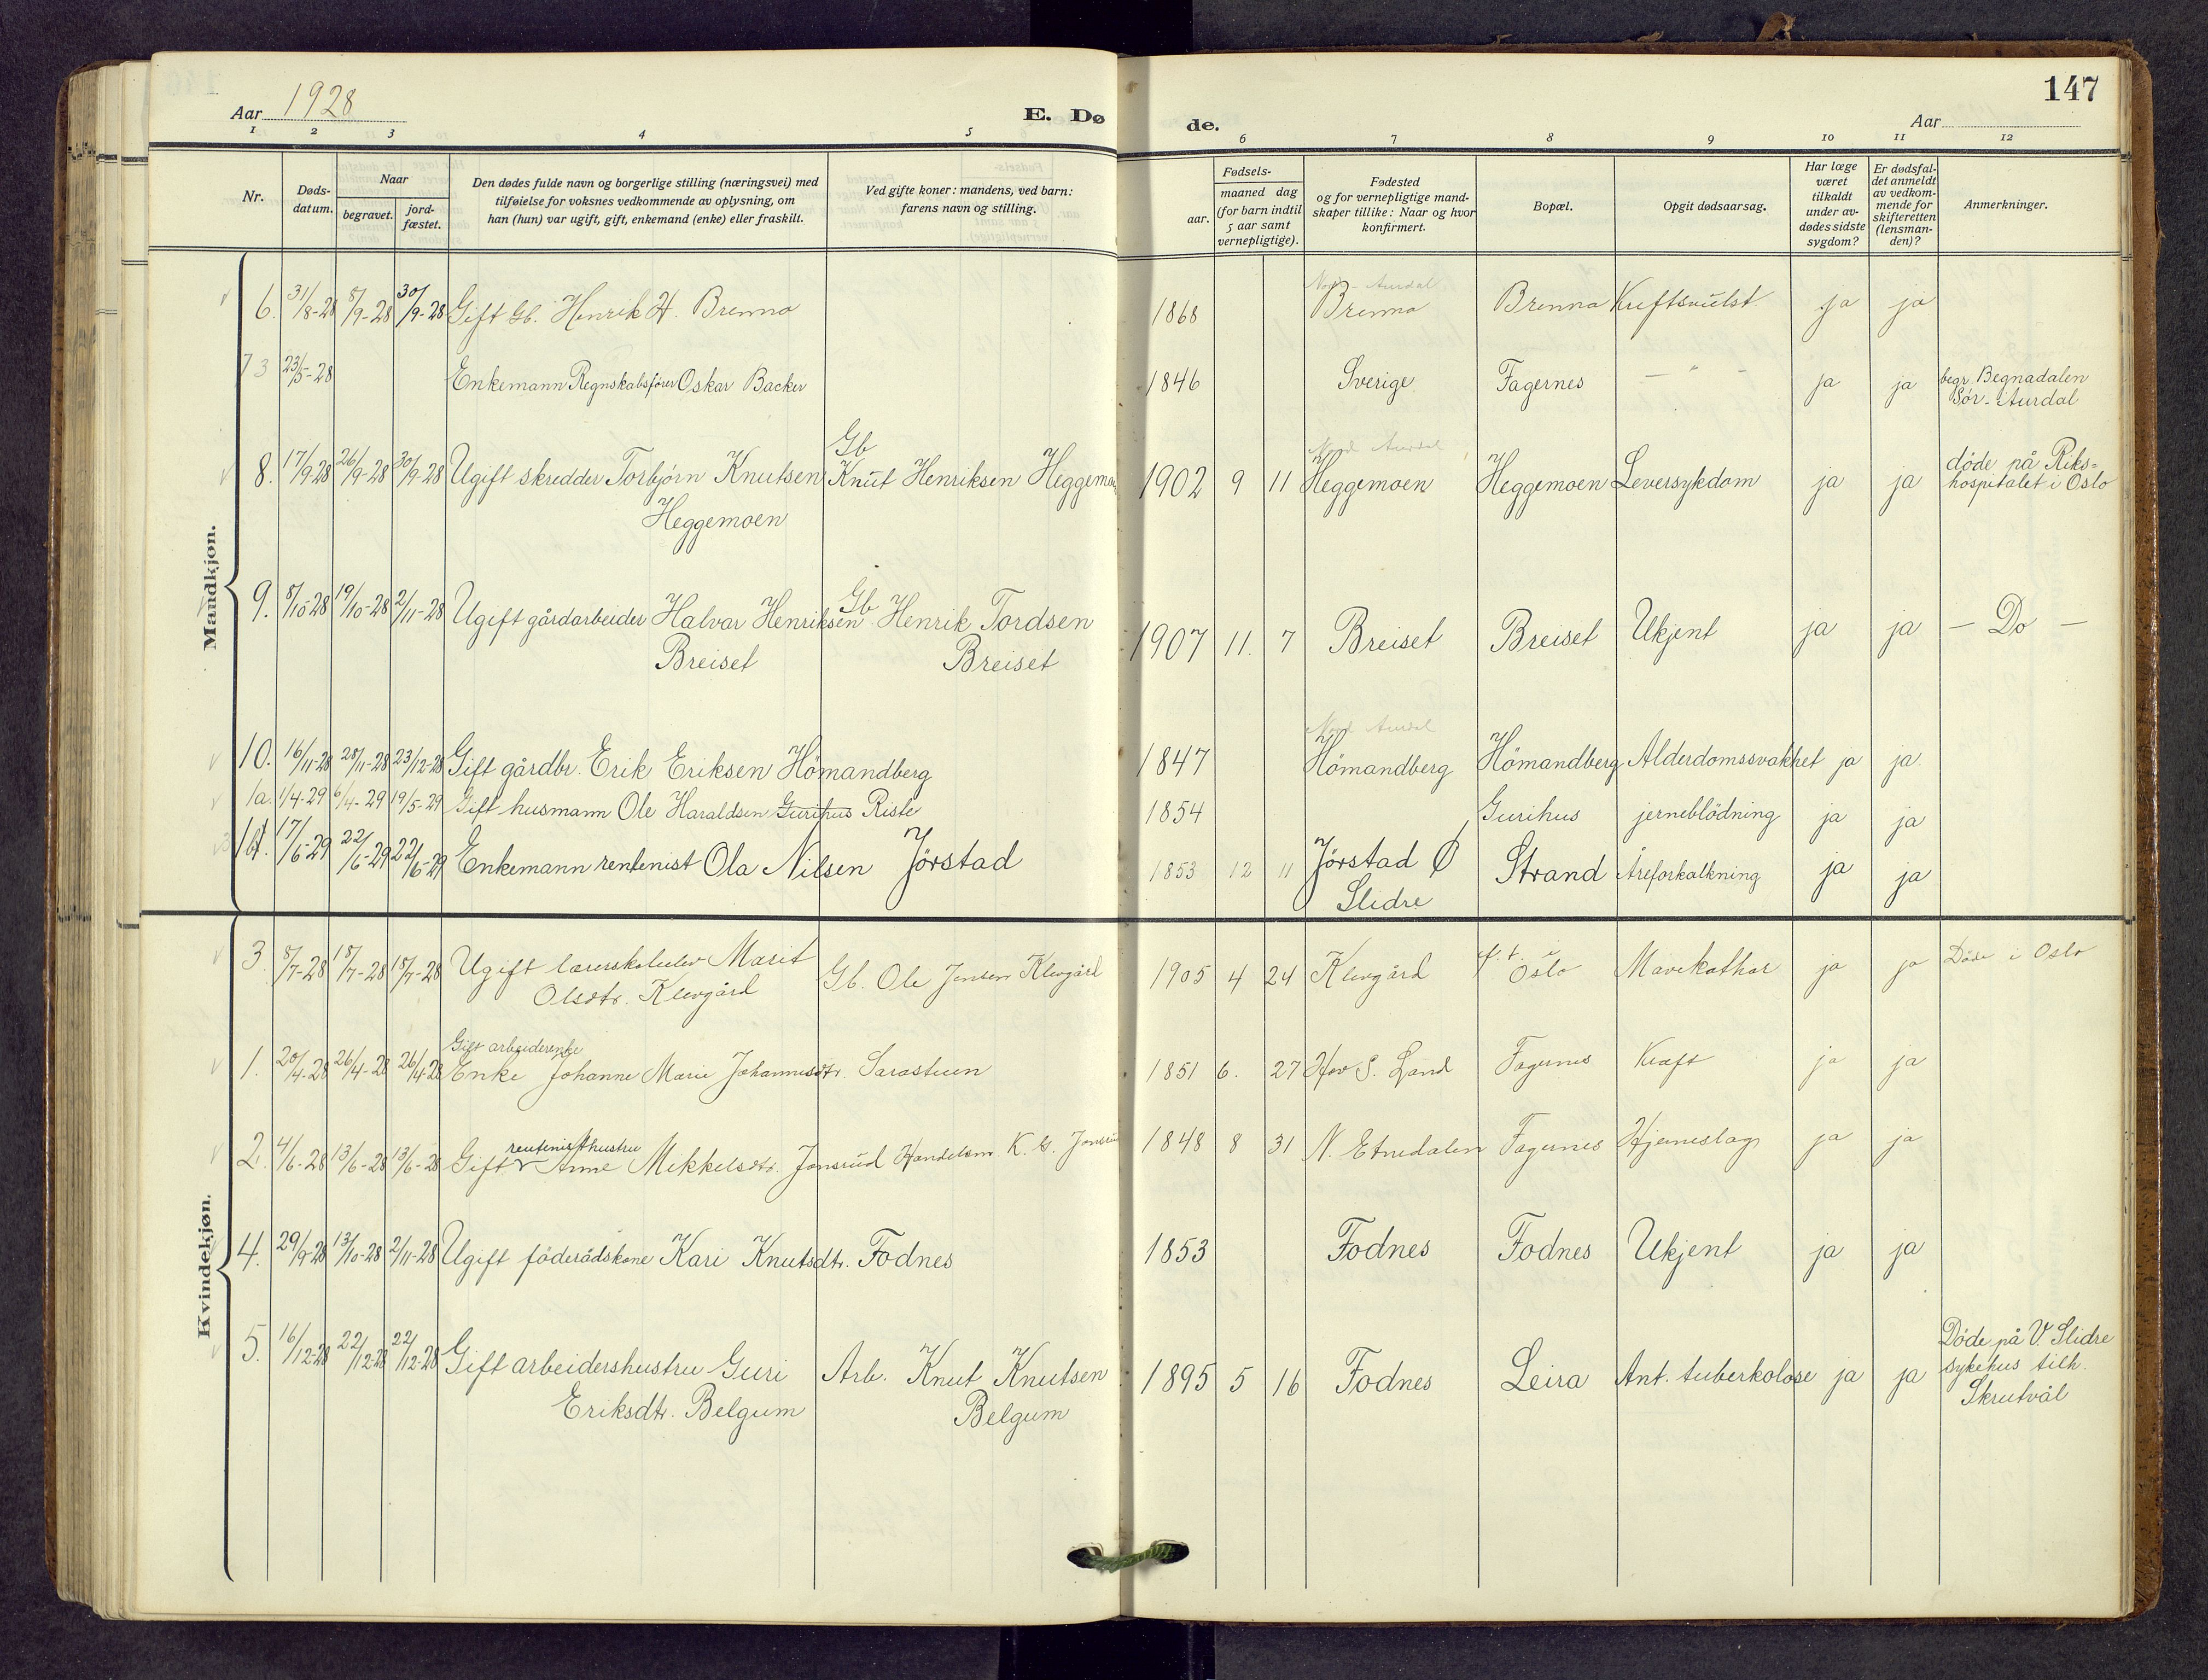 Aar 1928
E. Dø
de.
147
Aar
1 2 3 4 5 6 7 8 9 10 11 12
Nr.
Døds-
datum.
Naar
begravet.
jord-
fæstet.
Den dødes fulde navn og borgerlige stilling (næringsvei) med
tilføielse for voksnes vedkommende av oplysning, om
han (hun) var ugift, gift, enkemand (enke) eller fraskilt.
Ved gifte koner: mandens, ved barn:
farens navn og stilling.
Fødsels-
aar.
maaned dag
(for barn indtil
5 aar samt
vernepligtige).
Fødested
og for vernepligtige mand-
skaper tillike: Naar og hvor
konfirmert.
Bopæl.
Opgit dødsaarsag.
Har læge
været
tilkaldt
under av-
dødes sidste
sygdom?
Er dødsfal-
det anmeldt
av vedkom-
mende for
skifteretten
(lensman-
den)?
Anmerkninger.
Mandkjøn.
Nord-Aurdal
6. 31/8-28 8/9-28 30/9-28 Gift Gb. Henrik H. Brenna 1868 Brenna Brenna Kreftsvulst ja ja
7 3 23/5-28 Enkemann Regnskabsfører Oskar Backer 1846 Sverige Fagernes — " — ja ja begr. Begnadalen
Sør-Aurdal
Gb Nord Aurdal
8. 17/9-28 26/9-28 30/9-28 Ugift skredder Torbjørn Knutsen Knut Henriksen Heggemoen 1902 9 11 Heggemoen Heggemoen Leversykdom ja ja døde på Riks-
hospitalet i Oslo
Heggemoen
9. 8/10-28 19/10-28 2/11-28 Ugift gårdarbeider Halvar Henriksen Gb Henrik Tordsen 1907 11. 7 Breiset Breiset Ukjent ja ja — Do —
Breiset Breiset
Nord Aurdal
10. 16/11-28 28/11-28 23/12-28 Gift gårdbr. Erik Eriksen Hömandberg 1847 Hömandberg Hömandberg Alderdomssvakhet ja ja.
1a. 1/4-29 6/4-29 19/5-29 Gift husmann Ole Haraldsen Gurihus Riste 1854 Gurihus jerneblödning ja ja
1b. 17/6-29 22/6-29 22/6-29 Enkemann rentenist Ola Nilsen Jörstad 1853 12 11 Jörstad Ø Strand Åreforkalkning ja ja
Slidre
Kvindekjøn.
3. 8/7-28 18/7-28 18/7-28 Ugift lærerskoleelev Marit Gb. Ole Jensen Klevgård 1905 4 24 Klevgård p. t. i Oslo Mavekathar ja ja Døde i Oslo
Olsdtr. Klevgård
Gift arbeiderenke
1. 20/4-28 26/4-28 26/4-28 Enke Johanne Marie Johannesdtr. Sarasteen 1851 6. 27 Hov S. Land Fagernes Kræft ja ja
rentenisthustru
2. 4/6-28 13/6-28 13/6-28 Gift Anne Mikkelsdtr. Jonsrud Handelsm. K. G. Jonsrud 1848 8 31 N. Etnedalen Fagernes Hjerneslag ja ja
4. 29/9-28 13/10-28 2/11-28 Ugift föderådskone Kari Knutsdtr. Fodnes 1853 Fodnes Fodnes Ukjent ja ja
5. 16/12-28 22/12-28 22/12-28 Gift arbeidershustru Guri Arb. Knut Knutsen 1895 5 16 Fodnes Leira Ant. tuberkolose ja ja Døde på V. Slidre
sykehus tilh.
Skrutvål
Eriksdtr. Belgum Belgum